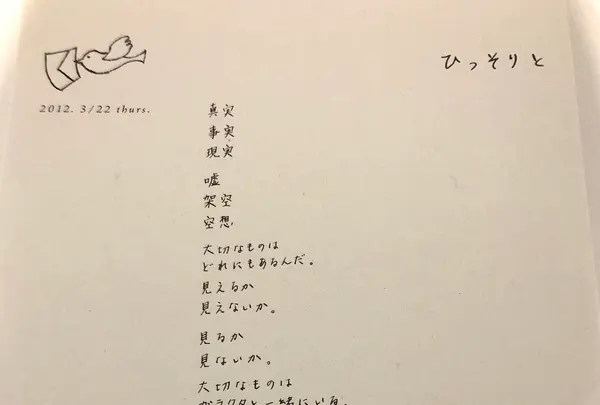 ひっそりと
2012. 3/22 thurs.
真実
事実
現実
嘘
架空
空想
大切なものは
どれにもあるんだ。
見えるか
見えないか。
見るか
見ないか。
大切なものは
ガラクタと一緒にいる。